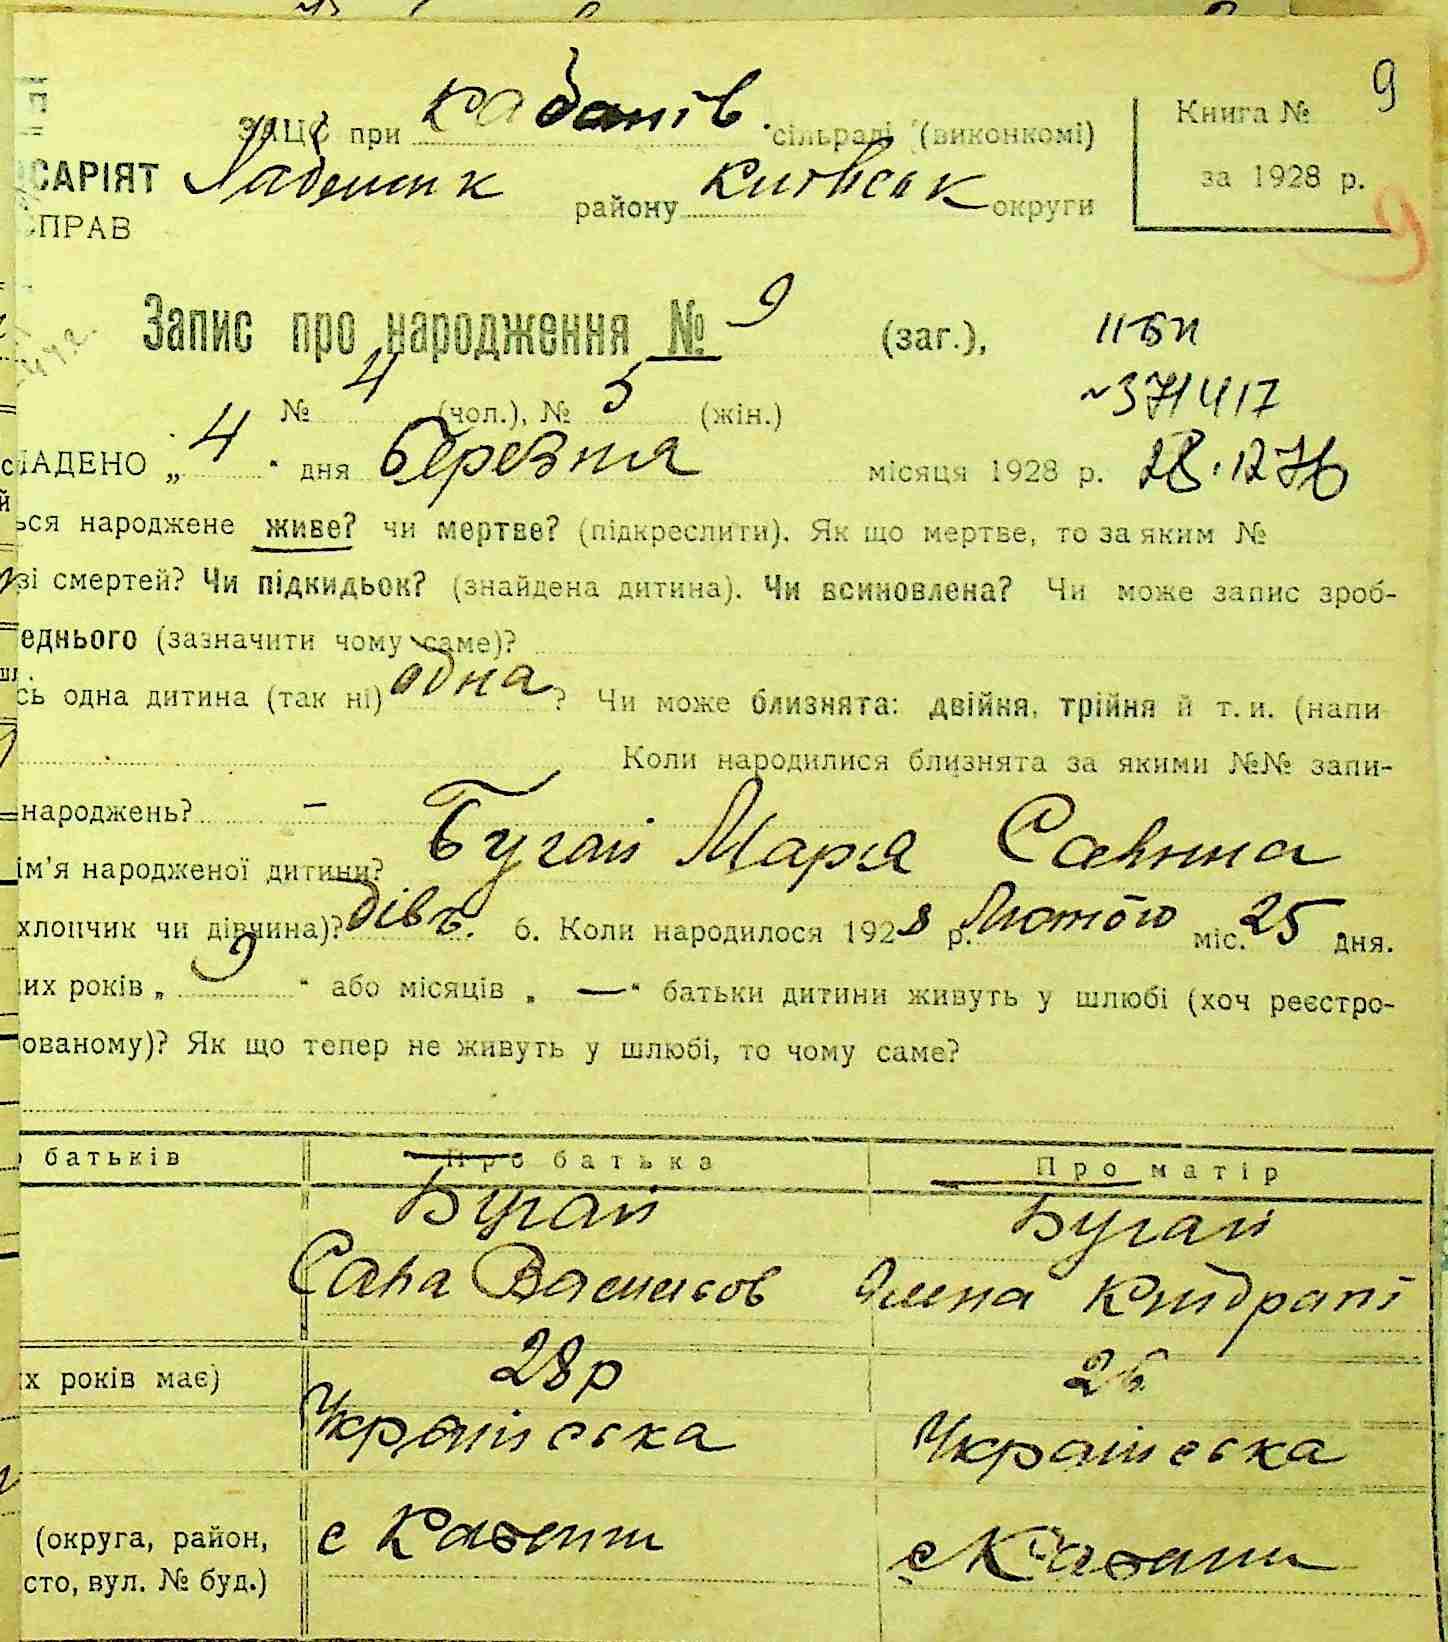 9
ЗАЦС при Кабанів. сільраді (виконкомі)
Книга №
САРІЯТ
району Київськ округи
за 1928 р.
ПРАВ
9
Запис про народження № 9 (заг.),
ІІБК
№ 4 (чол.), № 5 (жін.)
371417
ЛАДЕНО „ 4 “ дня Березня місяця 1928 р.
28.12.76
ься народжене живе? чи мертве? (підкреслити). Як що мертве, то за яким №
зі смертей? Чи підкидьок? (знайдена дитина). Чи всиновлена? Чи може запис зроб-
еднього (зазначити чому саме)?
сь одна дитина (так ні) одна ? Чи може близнята: двійня, трійня й т. и. (напи
Коли народилися близнята за якими №№ запи-
народжень? —
ім'я народженої дитини? Бугай Марія Савина
хлопчик чи дівчина)? дівч. 6. Коли народилося 1928 р. Лютого міс. 25 дня.
их років „ 9 “ або місяців „ — “ батьки дитини живуть у шлюбі (хоч реєстро-
ованому)? Як що тепер не живуть у шлюбі, то чому саме?
батьків Про батька Про матір
Бугай Бугай
Сава Васильов Олена Киндраті
х років має) 28р 26
Українська Українська
(округа, район, с Кабани с Кабани
сто, вул. № буд.)